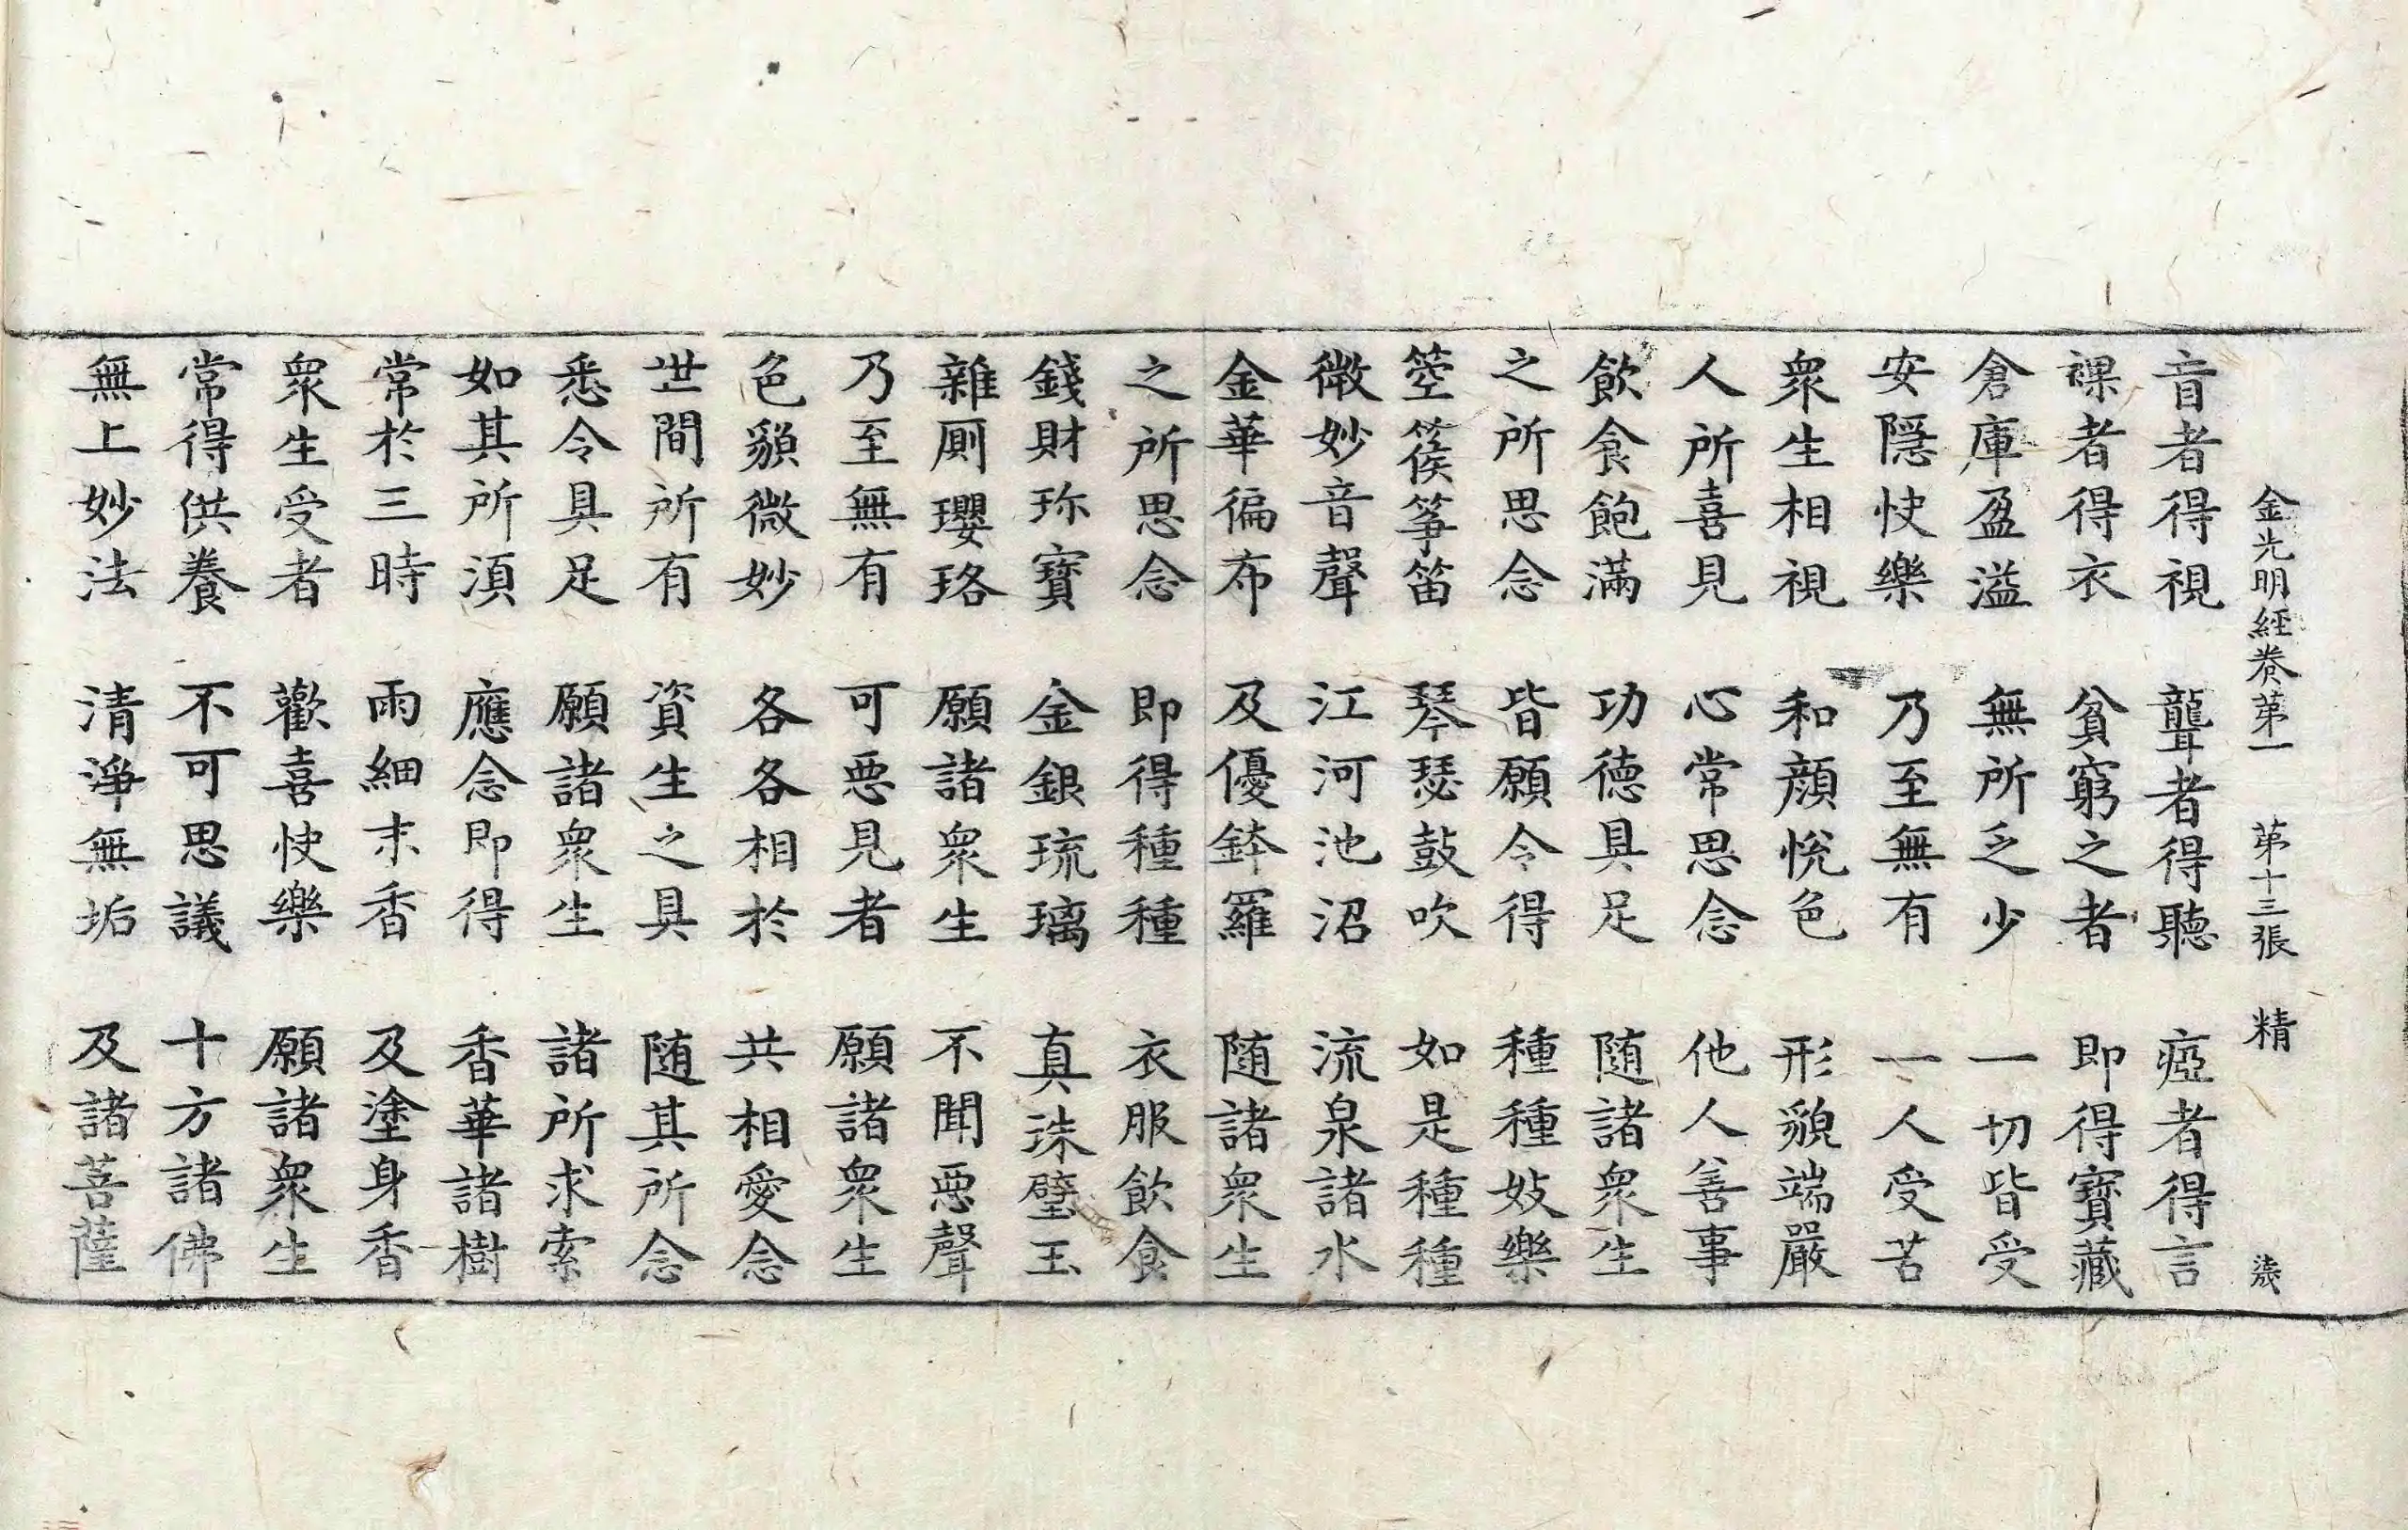 金光明經卷第一 第十三張 精
盲者得視 聾者得聽 瘂者得言
裸者得衣 貧窮之者 即得寶藏
倉庫盈溢 無所乏少 一切皆受
安隱快樂 乃至無有 一人受苦
衆生相視 和顏悅色 形貌端嚴
人所喜見 心常思念 他人善事
飲食飽滿 功德具足 隨諸衆生
之所思念 皆願令得 種種妓樂
箜篌箏笛 琴瑟鼓吹 如是種種
微妙音聲 江河池沼 流泉諸水
金華徧布 及優鉢羅 隨諸衆生
之所思念 即得種種 衣服飲食
錢財珎寶 金銀琉璃 真珠璧玉
雜厠瓔珞 願諸衆生 不聞惡聲
乃至無有 可惡見者 願諸衆生
色貌微妙 各各相於 共相愛念
世間所有 資生之具 隨其所念
悉令具足 願諸衆生 諸所求索
如其所須 應念即得 香華諸樹
常於三時 雨細末香 及塗身香
衆生受者 歡喜快樂 願諸衆生
常得供養 不可思議 十方諸佛
無上妙法 清淨無垢 及諸菩薩